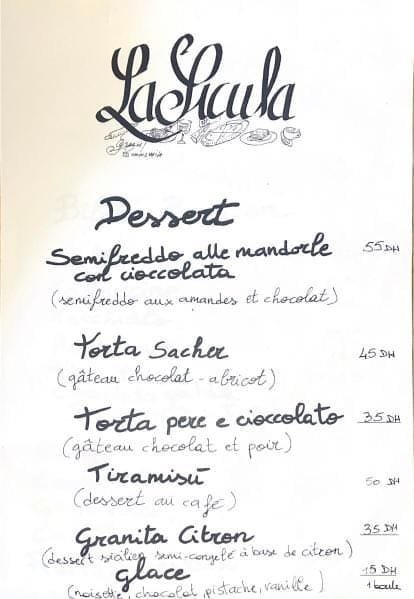 LaSicula
Dessert
Semifreddo alle mandorle 55 DH
con cioccolata
(semifreddo aux amandes et chocolat)
Torta Sacher 45 DH
(gâteau chocolat - abricot)
Torta pere e cioccolato 35 DH
(gâteau chocolat et poir)
Tiramisù 50 DH
(dessert au café)
Granita Citron 35 DH
(dessert sicilien semi-congelé à base de citron)
Glace 15 DH
(noisette, chocolat, pistache, vanille) 1 boule